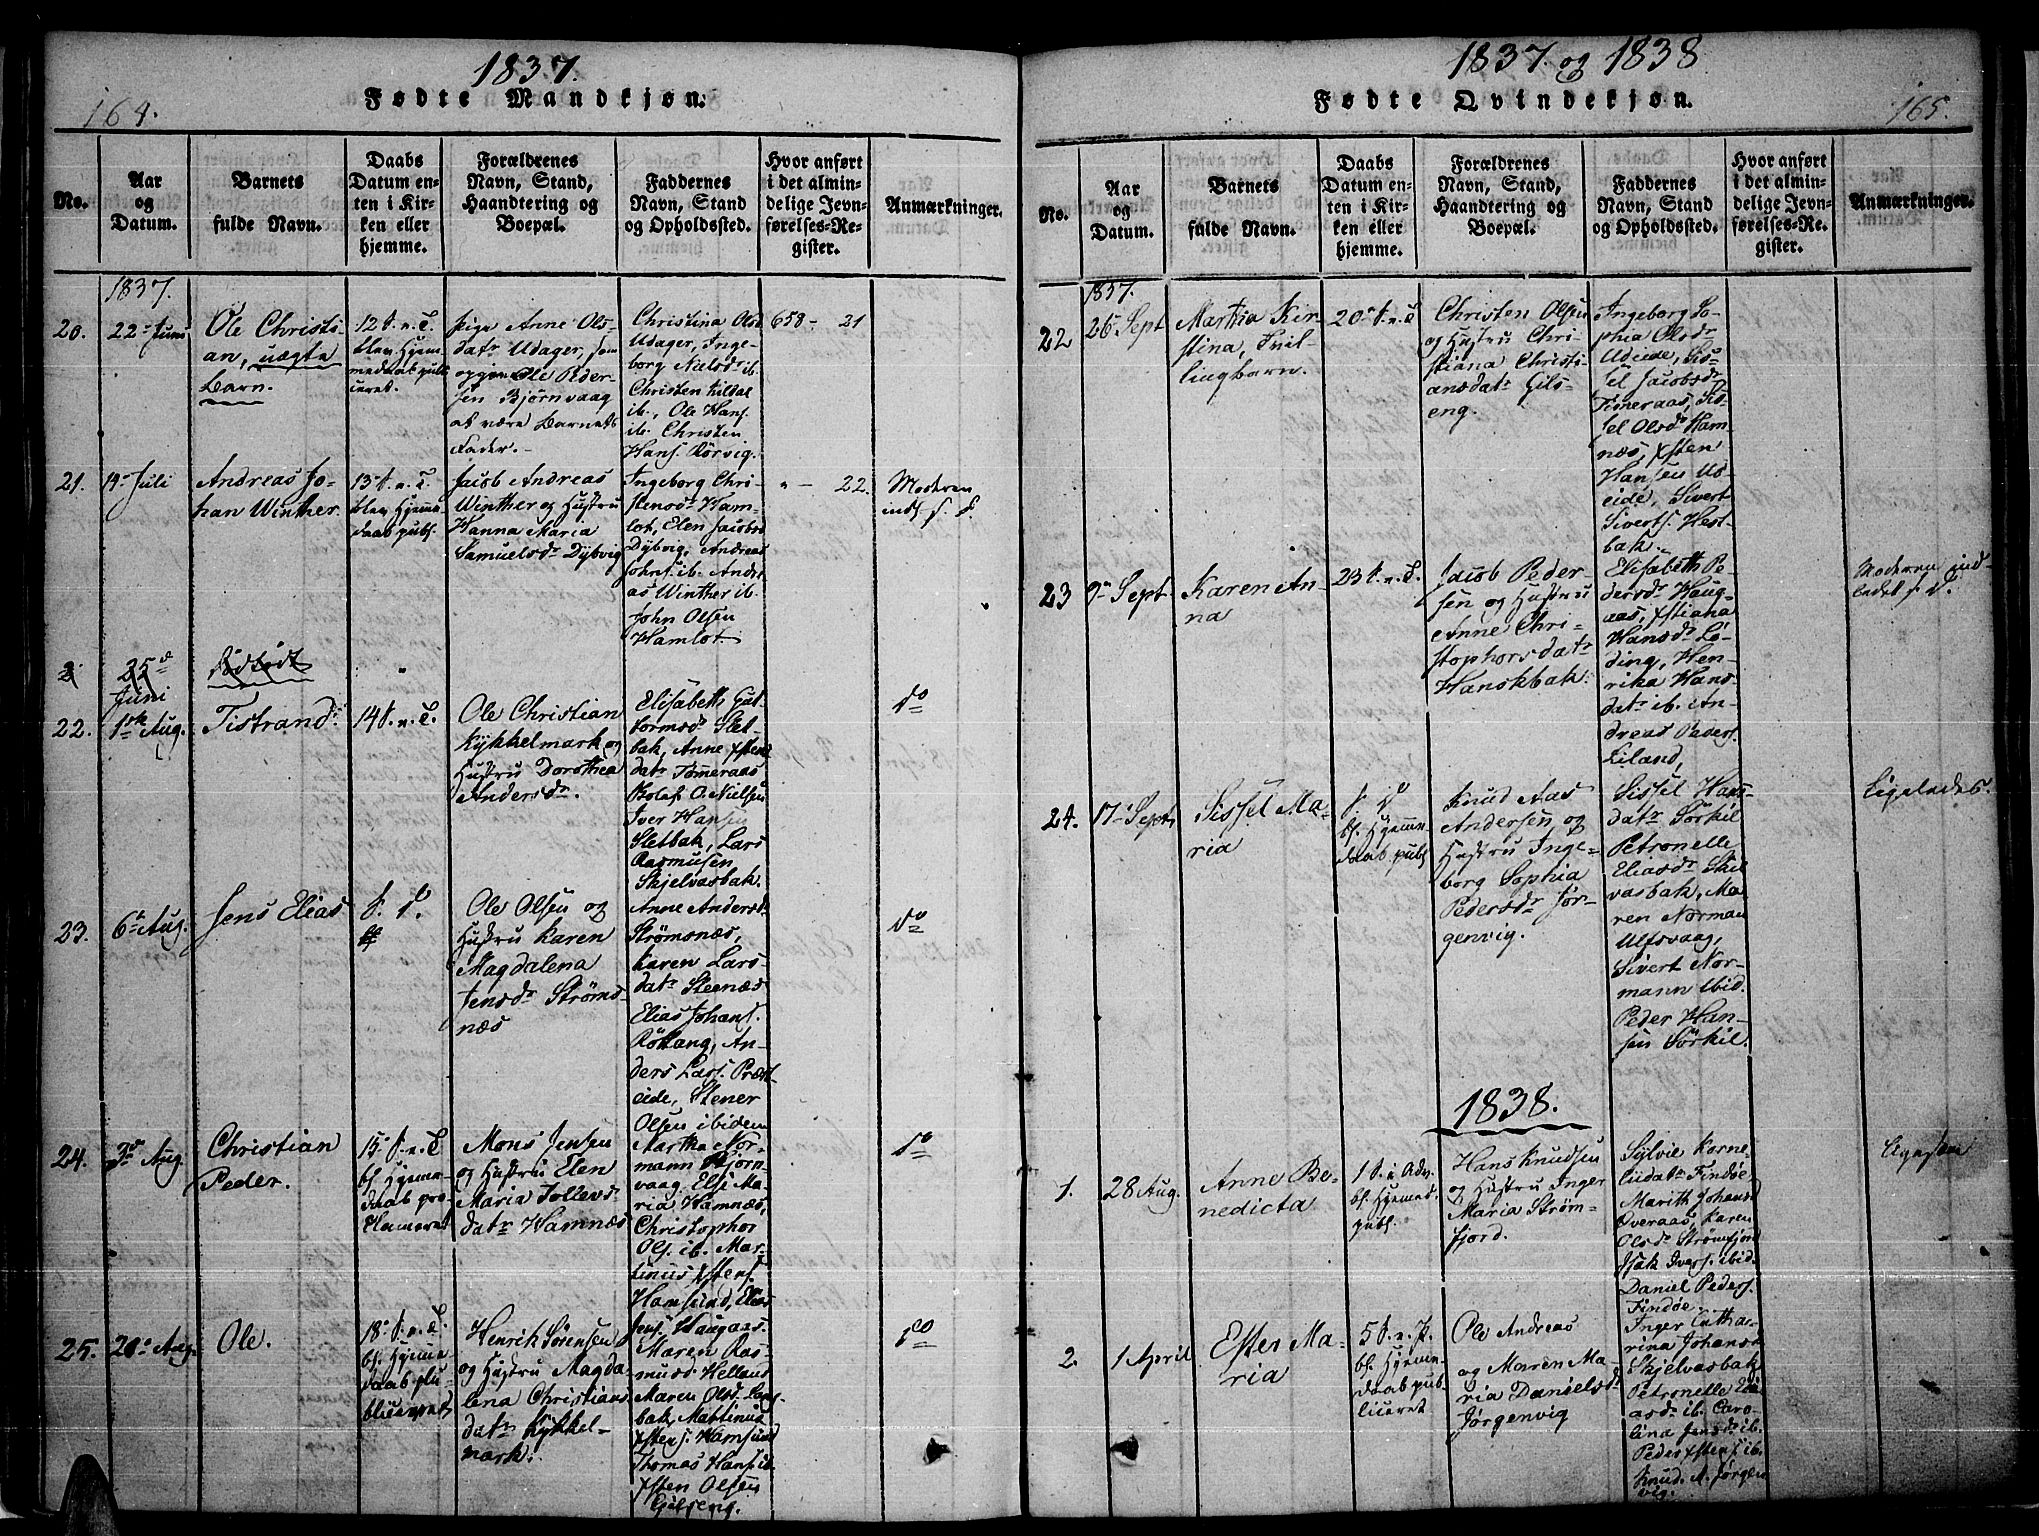 1837.
164.
Fødte Mandkjøn.
No.
Aar
og
Datum.
Barnets
fulde Navn.
Daabs
Datum en-
ten i Kir-
ken eller
hjemme.
Forældrenes
Navn, Stand,
Haandtering og
Boepæl.
Faddernes
Navn, Stand
og Opholdssted.
Hvor anført
i det almin-
delige Jevn-
førelses-Re-
gister.
Anmærkninger.
1837.
20.
22de Juni
Ole Christi-
an, uægte
Barn.
12 S. n. T.
blev Hjem-
medaab publ-
iceret.
Pige Anne Ols-
datr Udager, som
opgav Ole Peder-
sen Bjørnvaag
at være Barnets
Fader.
Christina Olsd
Udager, Inge-
borg Nielsdr ib.
Christen Kildal
ib., Ole Hans.
ib. Christen
Hans. Rörvig.
658 - 21
21.
14de Juli
Andreas Jo-
han Winther.
13 S. n. T.
blev Hjemme-
daab publ.
Jacob Andreas
Winther og Hustru
Hanna Maria
Samuelsdr Dybvig
Ingeborg Chri-
stensdr Ham-
lot, Elen Jacobsd
Dybvig, Andreas
Johns. ib. Andre-
as Winther ib.
John Olsen
Hamlot
" - 22.
Moderen
inds. s. d.
25d
Juni
Dødfødt
22.
1ste Aug.
Tistrand
14 S. n. T.
Ole Christian
Kykkelmark og
Hustru Dorothea
Andersdr.
Elisabeth Gut-
tormsdr Slet-
bak, Anne Xstens
datr Tømeraas
O. Nielsen
Iver Hansen
Sletbak, Lars
Rasmusen
Skjelvasbak.
do
23.
6te Aug.
Jens Elias
S. D.
Ole Olsen og
Hustru Karen
Magdalena
Jensdr Strøms-
næs
Anne Andersd
Strømsnæs,
Karen Lars-
datr Steenæs
Elias Johans.
An-
ders Lars. Præst-
eide, Stener
Olsen ibidem
do
24.
3de Aug.
Christian
Peder.
15 S. n. T.
bl. Hjemme-
daab pro-
clameret
Mons Jensen
og Hustru Elen
Maria Tollevs
datr Hamnæs
Martha Nor-
mann Bjørn-
vaag Else Ma-
ria Hamnæs,
Christopher
Ols. ib. Mar-
tinus Xstens.
Hamsund, Elias
Jens. Haugaas.
do
25.
20de Aug.
Ole.
18 S. n. T.
bl. Hjemme
daab pu-
bliceret
Henrik Sørensen
og Hustru Magda-
lena Christians
datr Kykkel-
mark.
Maren Ras-
musd Helland
Maren Olsdr
bak, Mattinus
Xstens. Hamsund
Thomas Hans. ib
Xsten Olsen
Gilseng.
do
1837. og 1838
Fødte Qvindekjøn.
165.
No.
Aar
og
Datum.
Barnets
fulde Navn.
Daabs
Datum en-
ten i Kir-
ken eller
hjemme.
Forældrenes
Navn, Stand,
Haandtering og
Boepæl.
Faddernes
Navn, Stand
og Opholdssted.
Hvor anført
i det almin-
delige Jevn-
førelses-Re-
gister.
Anmærkninger.
1837.
22
26 Sept
Martha Kir-
stina, Tvil-
lingbarn.
20 S. n. T
Christen Olsen
og Hustru Chri-
stiana Christi-
ansdatr Gils-
eng.
Ingeborg So-
phia Olsdr
Udeide, Sis-
sel Jacobsdr
Tømeraas, Sis-
sel Olsdr Ham-
næs, Xsten
Hansen Ud-
eide, Sivert
Siverts. Hest-
bak.
23
9de Sept
Karen An-
na
23 S. n. T.
Jacob Peder-
sen og Hustru
Anne Chri-
stophorsdatr
Hanskbak.
Elisabeth Pe-
dersdr Haug-
aas, Xstiana
Hansdr Lø-
ding, Hen-
rika Hans-
datr ib. An-
dreas Peders.
Liland,
Moderen ind-
ledet s. D.
24.
17de Sept
Sissel Ma-
ria
S. D
bl. Hjemme-
daab publ
Knud Aas
Andersen og
Hustru Inge-
borg Sophia
Pedersdr Jør-
genvig.
Sissel Hans-
datr Sörkil
Petronelle
Eliasdr Skil-
vasbak, Ma-
ren Norman
Ulfsvaag,
Sivert Nor-
mann ibid.
Peder Han-
sen Sörkil.
Ligeledes.
1838.
1.
28 Aug.
Anne Be-
nedicta
1 S. i Adv.
bl. Hjemmed.
publ.
Hans Knudsen
og Hustru Inger
Maria Strøm-
fjord.
Sylvie Korne-
liidatr Findøe
Marith Johansd
Overaas, Karen
Olsdr Strømfjord
Isak Ivers. ibid.
Daniel Peders.
Findøe
2.
1 April
Ester Ma-
ria
5 S. n. P.
bl. Hjemme-
daab pub-
liceret
Ole Andreas
og Maren Ma-
ria Danielsdr
Jørgenvig
Inger Catha-
rina Johansd
Skjelvasbak
Petronelle Eli-
asdr ib. Caro-
lina Jensdr ib.
Peder Xstens. ib.
Knud A. Jørgen-
vig.